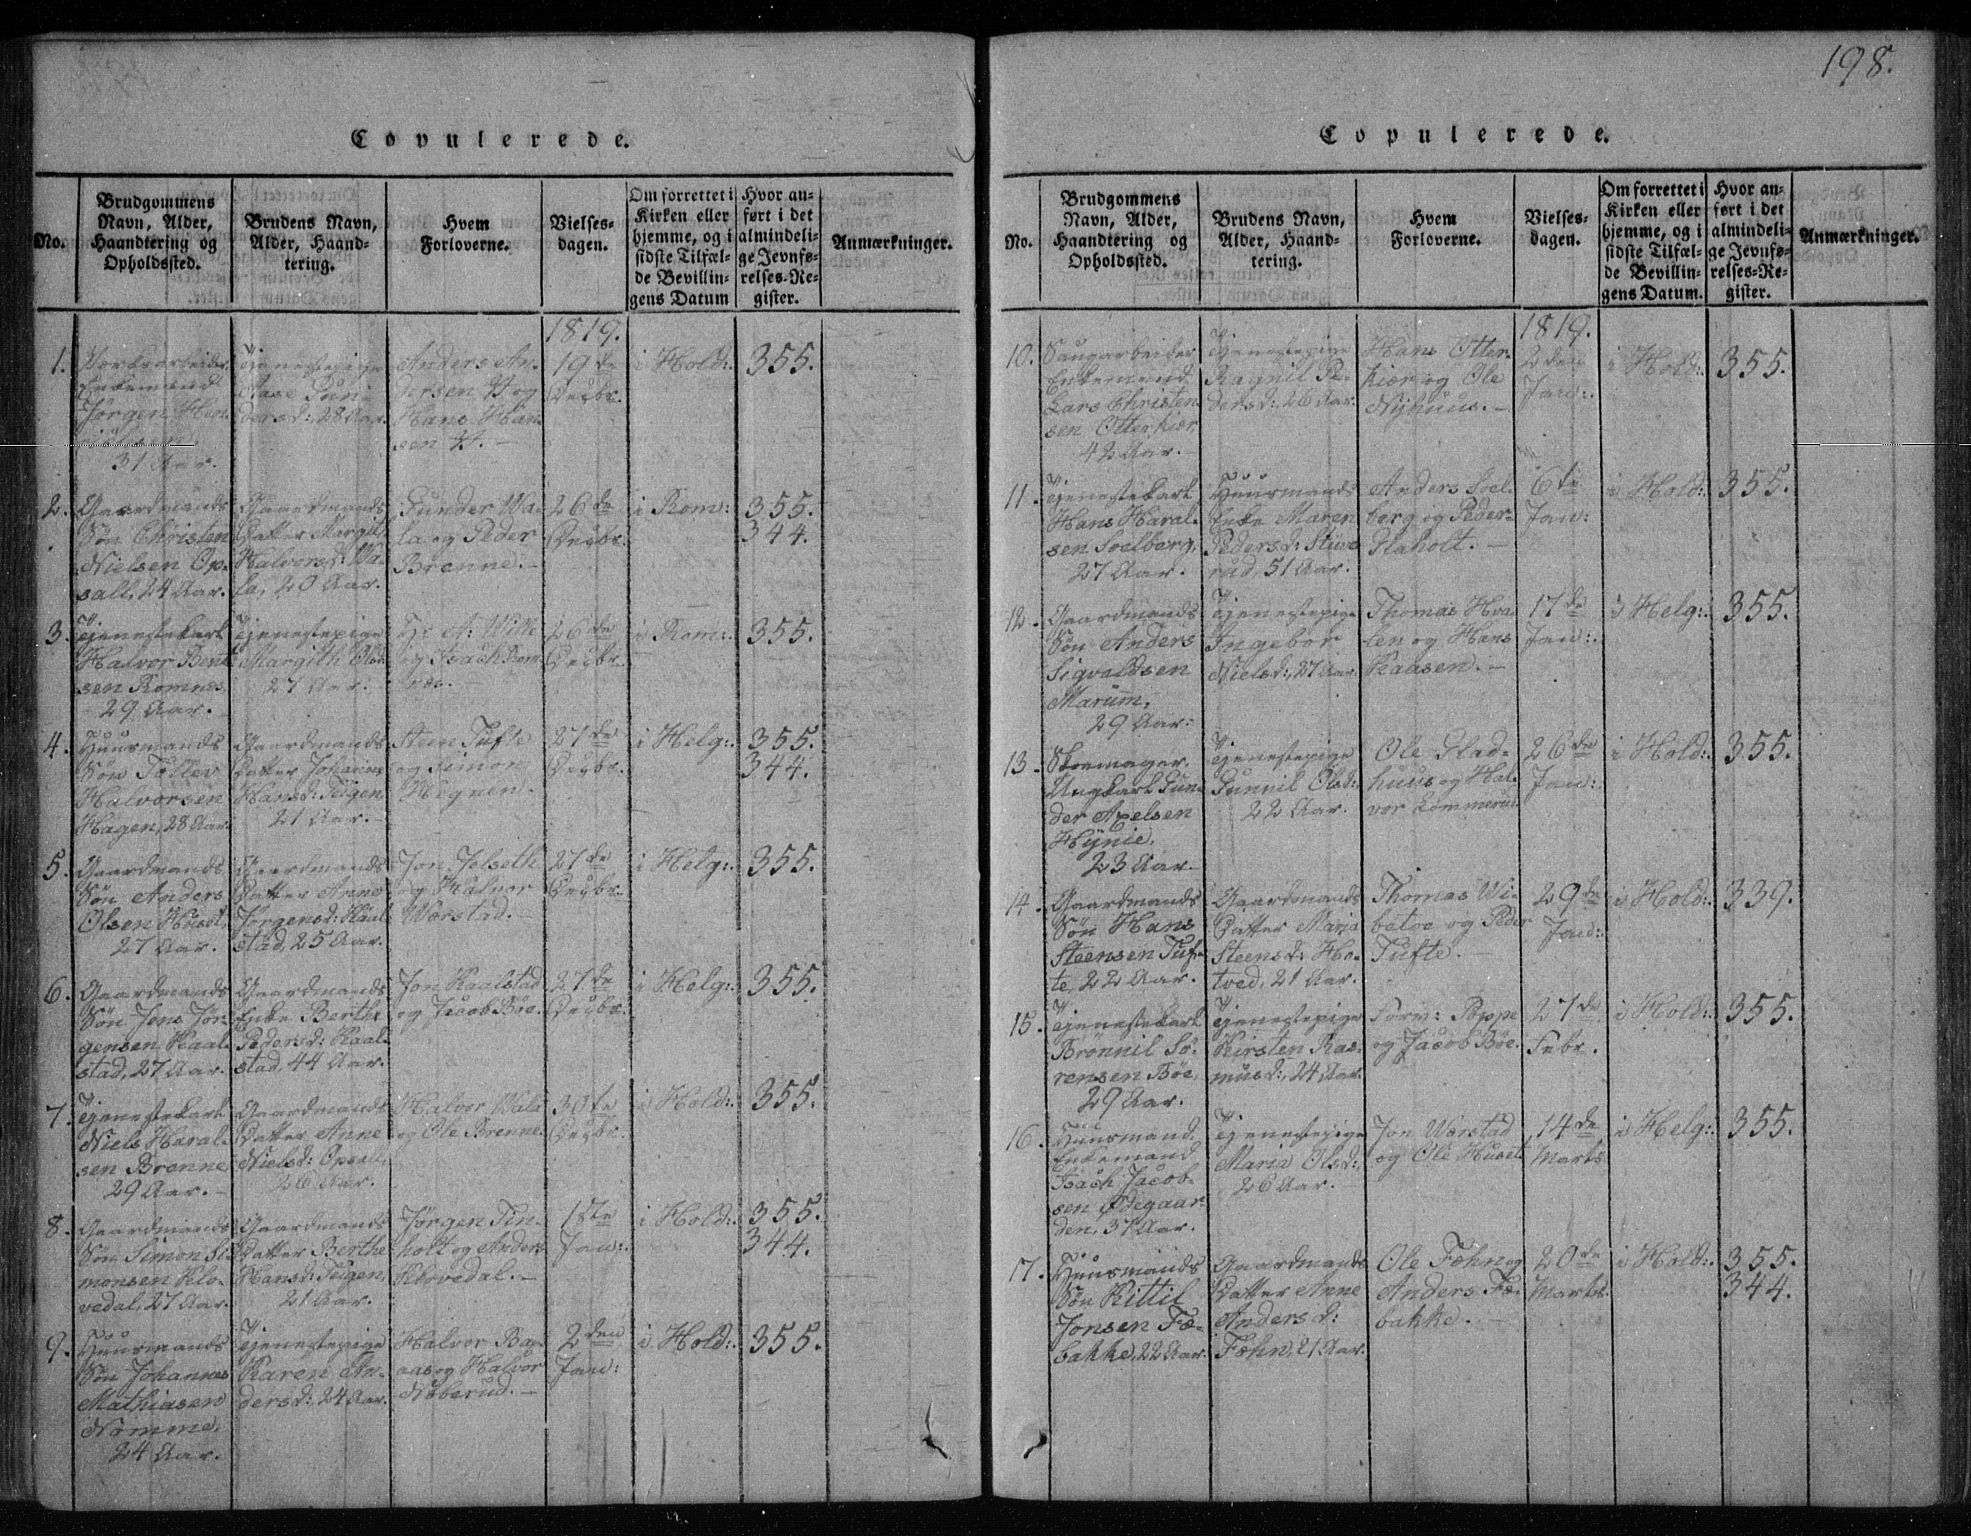 198.
Copulerede.
No.
Brudgommens Navn, Alder, Haandtering og Opholdssted.
Brudens Navn, Alder, Haandtering.
Hvem Forloverne.
Vielsesdagen.
Om forrettet i Kirken eller hjemme, og i sidste Tilfælde Bevillingens Datum
Hvor anført i det almindelige Jevnførelses-Register.
Anmærkninger.
1819.
1. Enkemand Jørgen 31 Aar. Tjenestepige Aase Gundersd: 28 Aar. Anders Andersen og Hans Hansen 19de Decbr. i Hold: 355.
2. Gaardmands Søn Christen Nielsen Opsall, 24 Aar. Gaardmands Datter Margit Halvorsd: Wala, 20 Aar. Gunder Wala og Peder Brenne. 26de Decbr. i Rom: 355. 344.
3. Tjenestekarl Halvor Bentsen Romnes 29 Aar. Tjenestepige Margith Olsd 27 Aar. og Isach Romnes. 26de Decbr. i Rom: 355.
4. Huusmands Søn Tollev Halvorsen Hagen, 28 Aar. Gaardmands Datter Johanne Hansd: Teigen 21 Aar. Steen Tufte og Simon Hegnen. 27de Decbr. i Helg: 355. 344.
5. Gaardmands Søn Anders Olsen Huset, 27 Aar. Gaardmands Datter Anne Jørgensd: Kaalstad, 25 Aar. Jon Jelseth og Halvor Worstad. 27de Decbr. i Helg: 355.
6. Gaardmands Søn Jens Jørgensen Kaalstad, 27 Aar. Gaardmands Enke Berthe Pedersd: Kaalstad, 44 Aar. Jon Kaalstad og Jacob Böe. 27de Decbr. i Helg: 355.
7. Tjenestekarl Niels Haralsen Brenne 29 Aar. Gaardmands Datter Anne Nielsd: Opsall, 26 Aar. Halvor Wala og Ole Brenne. 30te Decbr. i Hold: 355.
8. Gaardmands Søn Simon Simonsen Klovedal, 27 Aar. Gaardmands Datter Berthe Hansd: Teigen, 21 Aar. Jørgen Tinholt og Anders Klovedal. 1ste Jan: i Hold: 355. 344.
9. Huusmands Søn Johannes Mathiasen Nomme, 24 Aar. Tjenestepige Karen Andersd: 24 Aar. Halvor Baaas og Halvor Noberud. 2den Jan: i Hold: 355.
Copulerede.
No.
Brudgommens Navn, Alder, Haandtering og Opholdssted.
Brudens Navn, Alder, Haandtering.
Hvem Forloverne.
Vielsesdagen.
Om forrettet i Kirken eller hjemme, og i sidste Tilfælde Bevillingens Datum.
Hvor anført i det almindelige Jevnførelses-Register.
Anmærkninger.
1819.
10. Saugarbeider Enkemand Lars Christensen Otterkier 42 Aar. Tjenestepige Ragnil Pedersd: 26 Aar. Hans Otterkier og Ole Nyhuus. 2den Jan: i Hold: 355.
11. Tjenestekarl Hans Haralsen Soelberg, 27 Aar. Huusmands Enke Maren Pedersd: Stuverud, 51 Aar. Anders Soelberg og Peder Flaholt. 6te Jan: i Hold: 355.
12. Gaardmands Søn Anders Sigvaldsen Marum, 29 Aar. Tjenestepige Ingebor Nielsd:, 27 Aar. Thomas Hvalen og Hans Kaasen. 17de Jan: i Helg: 355.
13. Skoemager, Ungkarl Gunder Axelsen Hÿnie, 23 Aar. Tjenestepige Gunnil Olsd: 22 Aar. Ole Gladhuus og Halvor Lommerud 26de Jan: i Hold: 355.
14. Gaardmands Søn Hans Steensen Tufte, 22 Aar. Gaardmands Datter Maria Steensd: Hotved, 21 Aar. Thomas Wibetoe og Peder Tufte. 29de Jan: i Hold: 339.
15. Tjenestekarl Brönnil Sörensen Böe, 29 Aar. Tjenestepige Kirsten Rasmusd:, 24 Aar. Form: Poppe og Jacob Böe. 27de Febr. i Hold: 355.
16. Huusmand, Enkemand Isach Jacobsen Ødegaarden, 37 Aar. Tjenestepige Maria Olsd: 26 Aar. Jon Worstad og Ole Huset 14de Marts i Helg: 355.
17. Huusmands Søn Kittil Jonsen Fæbakke, 22 Aar. Gaardmands Datter Anne Andersd: Fæhn, 21 Aar. Ole Fæhn og Anders Fæbakke. 20de Marts i Hold: 355. 344.